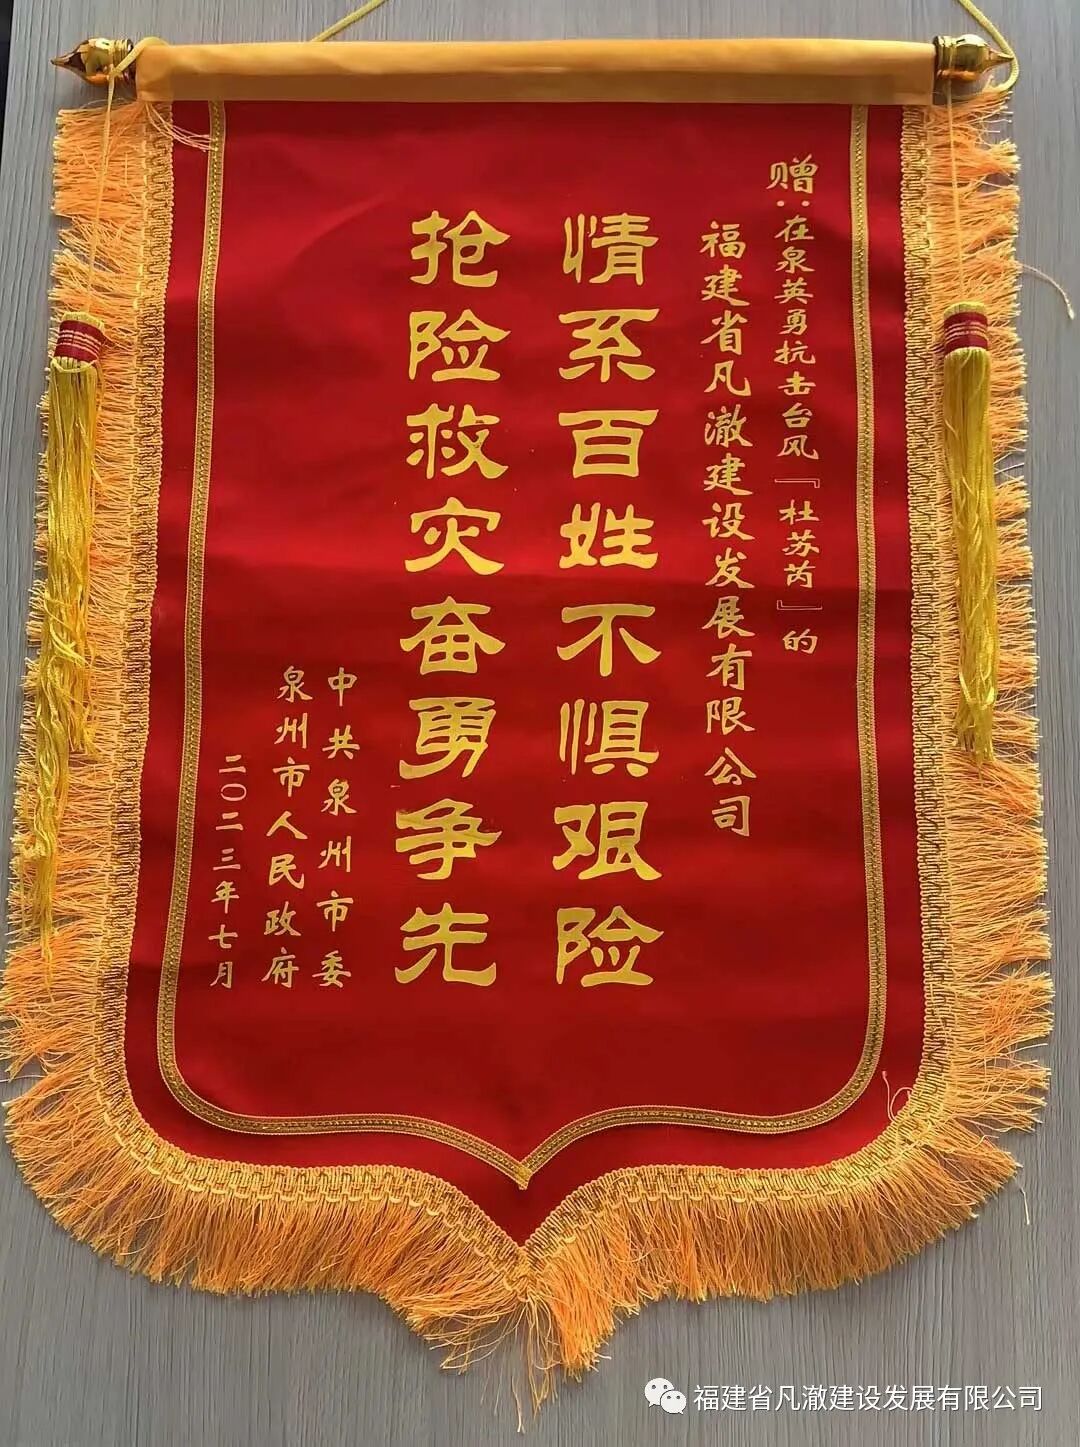 赠：在泉英勇抗击台风『杜苏芮』的
福建省凡澈建设发展有限公司
情系百姓不惧艰险
抢险救灾奋勇争先
中共泉州市委
泉州市人民政府
二〇二三年七月
福建省凡澈建设发展有限公司